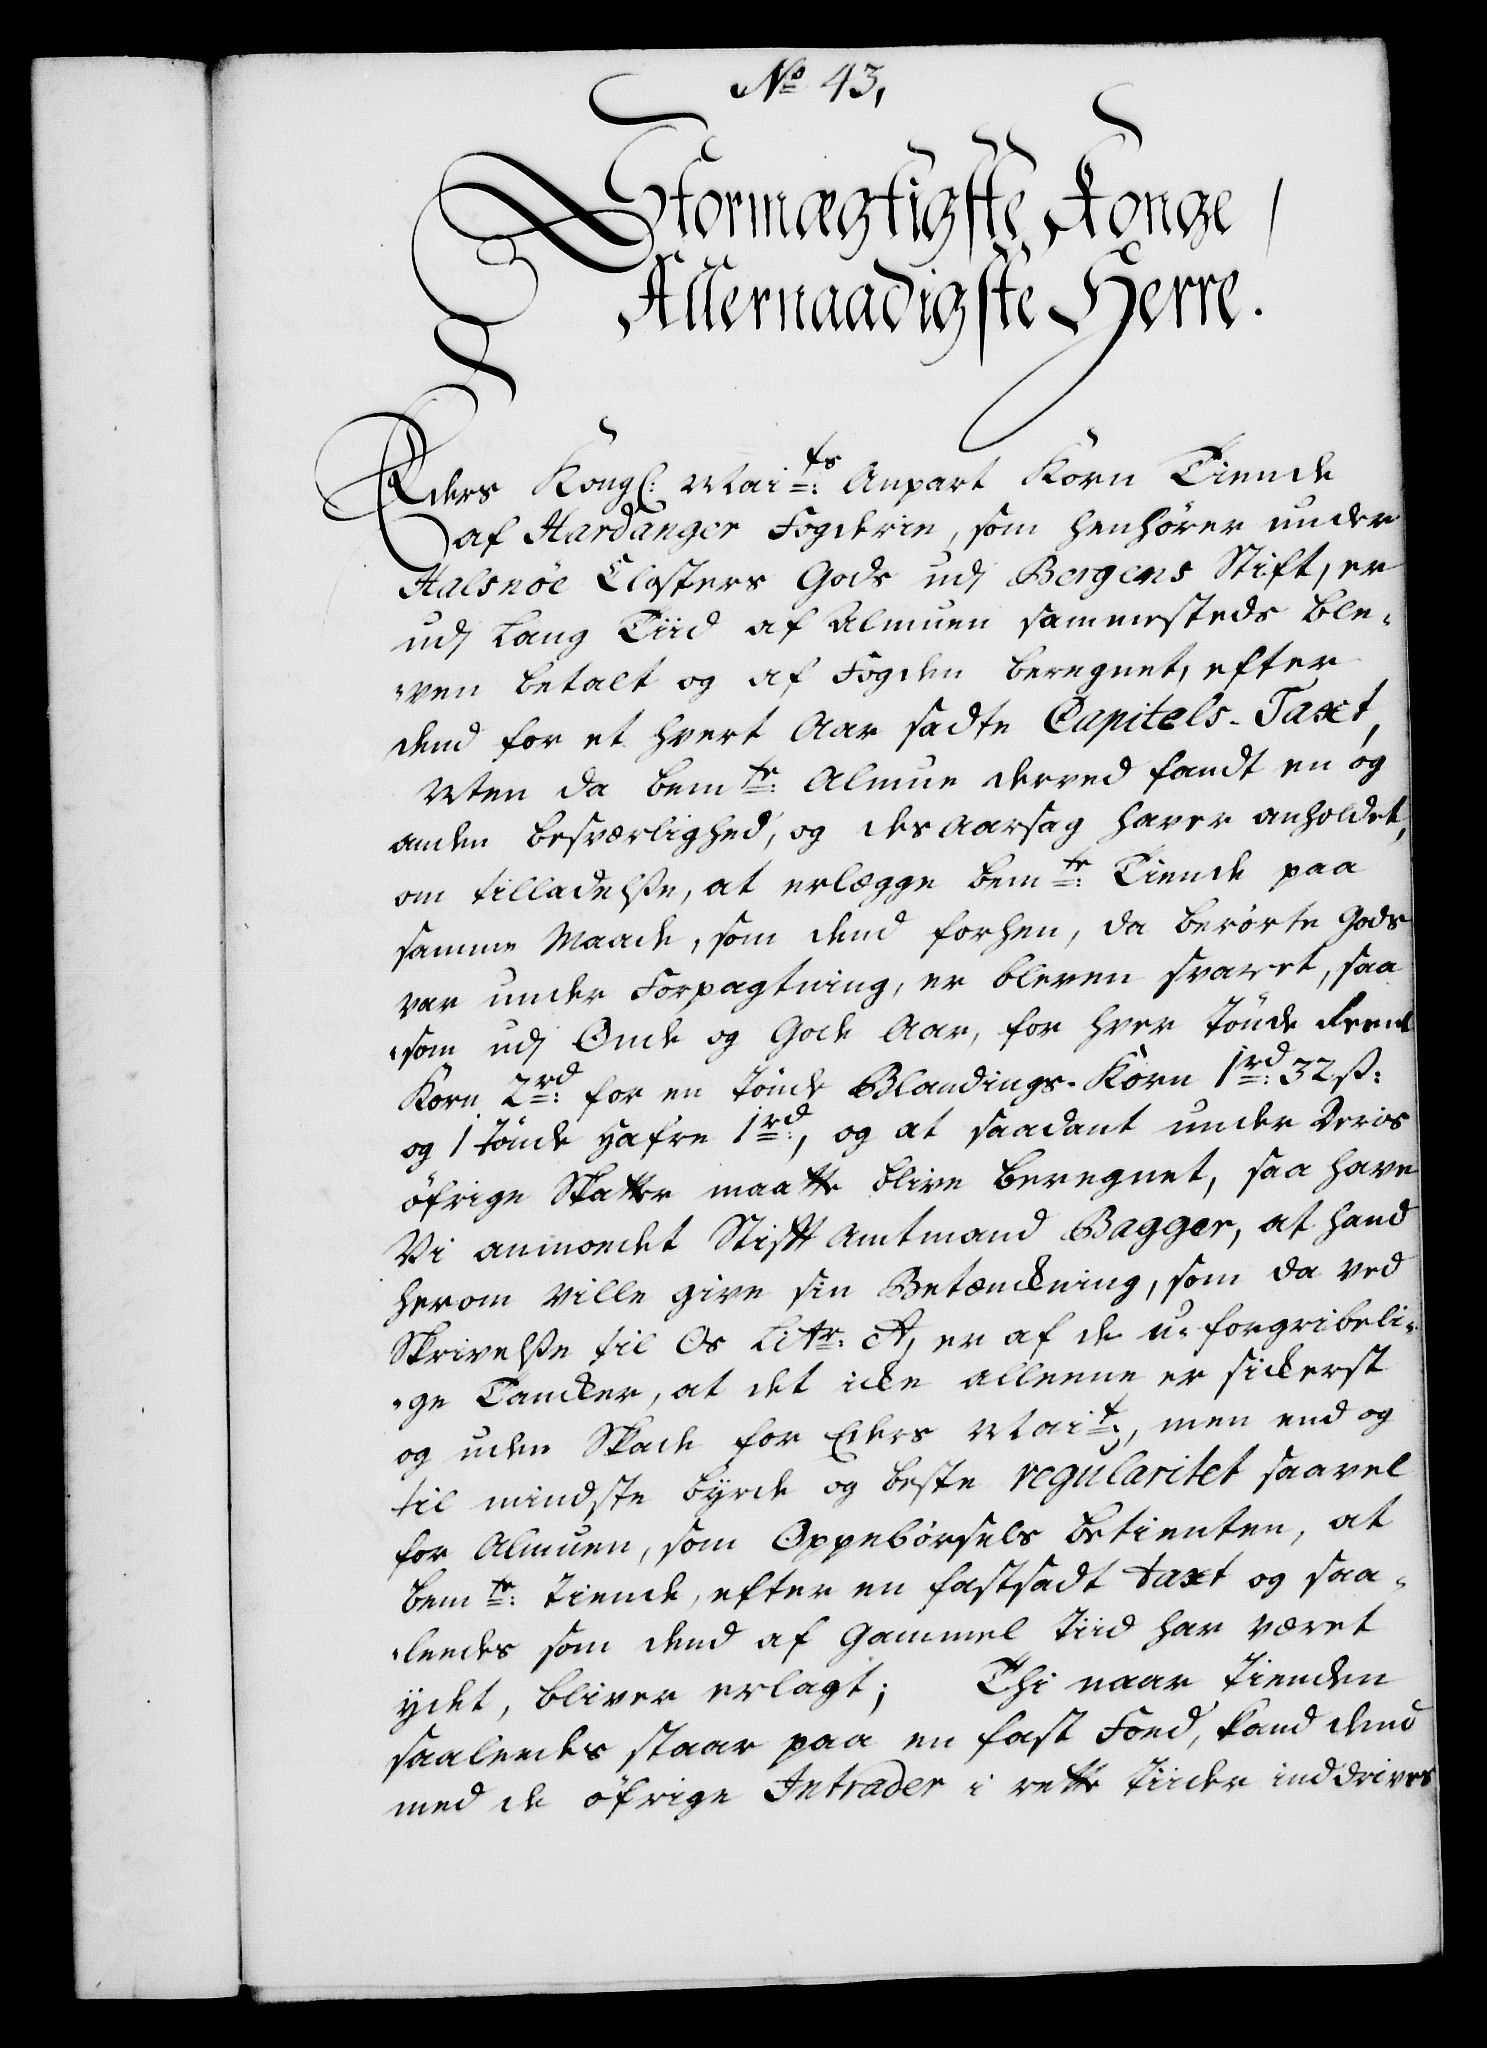 No 43,
Stormægtigste Konge
Allernaadigste Herre.
Eders Kongl: Maits: Anpart Korn Tiende
af Hardanger Fogderie, som henhörer under
Halsnöe Closters Gods udj Bergens Stift, er
udj Lang Tiid af Almuen sammesteds ble-
-ven betalt og af Fogden beregnet, efter
dend for et hvert Aar sadte Capitels-Taxt,
Men da bemte: Almue derved fandt en og
anden besværlighed, og des Aarsag haver anholdet,
om tilladelsse, at erlægge bemte: Tiende paa
samme Maade, som dend forhen, da berörte Gods
var under Forpagtning, er bleven svaret, saa
-som udj Onde og Gode Aar, for hver Tönde Reent
Korn 2rd: for en Tönde Blandings-Korn 1rd: 32 ss:
og 1 Tönde Hafre 1rd:, og at saadant under Deris
öfrige Skatter maatte blive beregnet, saa have
Vi anmodet Stift Amtmand Bagger, at hand
herom ville give sin Betænckning, som da ved
Skrivelsse til Os Litr: A, er af de u-forgribeli-
-ge Tancker, at det icke alleene er sickerst
og uden Skade for Eders Mait:, men end og
til mindste byrde og beste regularitet saavel
for Almuen, som Oppebörsels Betienten, at
bemte: Tiende, efter en fastsadt taxt og saa-
-leedes som dend af Gammel Tiid har været
ydet, bliver erlagt; Thi naar Tienden
saaleedes staar paa en fast Foed, kand dend
med de öfrige Intrader i rette Tiider inddrives